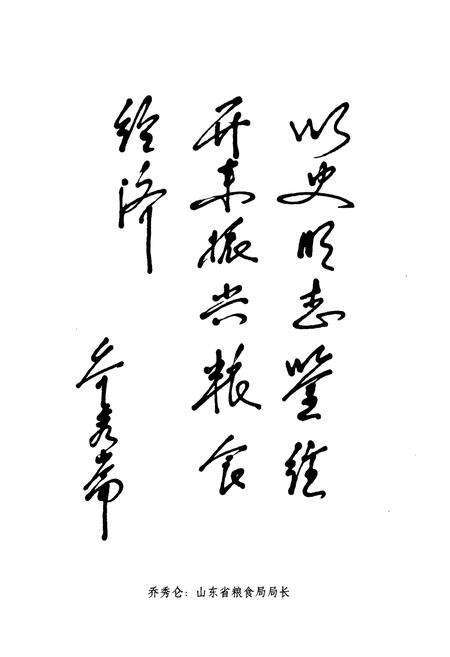 以史明志鉴往
开来振兴粮食
经济
乔秀崙
乔秀仑：山东省粮食局局长